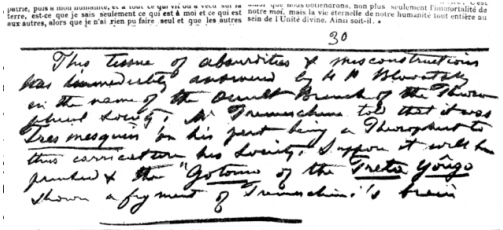 patrie, puis à mon humanité, et à tout ce qui vit ou a vécu sur la
terre, est-ce que je sais seulement ce qui est à moi et ce qui est
aux autres, alors que je n'ai rien pu faire seul et que les autres
notre moi, mais la vie éternelle de notre humanité tout entière au
sein de l'Unité divine. Ainsi soit-il. »
30
This tissue of absurdities & misconstructions
was immediately answered by H P Blavatsky
in the name of the Occult Branch of the Theoso
phical Society. Mr Tremeschini told that it was
Très mesquin on his part being a Theosophist to
thus carricature his Society. Suppose it will be
printed & the "Gotomo of the Treta Yôugo
shown a figment of Tremeschini's brain